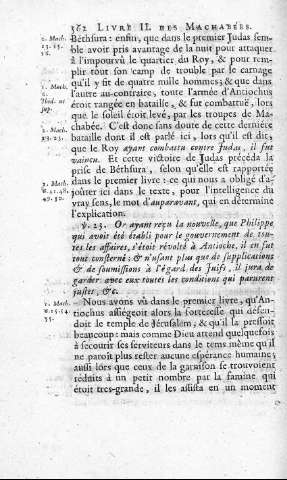 362 LIVRE II. DES MACHABÉES.
2. Mach. Béthsura : enfin, que dans le premier Judas sem-
13. 15. ble avoir pris avantage de la nuit pour attaquer
16. à l'impourvû le quartier du Roy, & pour rem-
plir tout son camp de trouble par le carnage
1. Mach. qu'il y fit de quatre mille hommes; & que dans
l'autre au-contraire, toute l'armée d'Antiochus
Ibid. ut étoit rangée en bataille, & fut combattuë, lors
sup. que le soleil étoit levé, par les troupes de Ma-
2. Mach. chabée. C'est donc sans doute de cette derniére
bataille dont il est parlé ici, lors qu'il est dit;
que le Roy ayant combattu contre Judas, il fut
vaincu. Et cette victoire de Judas précéda la
prise de Béthsura, selon qu'elle est rapportée
1. Mach. dans le premier livre : ce qui nous a obligé d'a-
joûter ici dans le texte, pour l'intelligence du
49. 50. vray sens, le mot d'auparavant, qui en détermine
l'explication.
℣. 23. Or ayant reçu la nouvelle, que Philippe,
qui avoit été établi pour le gouvernement de tou-
tes les affaires, s'étoit révolté à Antioche, il en fut
tout consterné ; & n'usant plus que de supplications
& de soumissions à l'égard des Juifs, il jura de
garder avec eux toutes les conditions qui parurent
justes, &c.
1. Mach. Nous avons vû dans le premier livre, qu'An-
tiochus assiégeoit alors la forteresse qui défen-
doit le temple de Jérusalem, & qu'il la pressoit
beaucoup : mais comme Dieu attend quelquefois
à secourir ses serviteurs dans le tems même qu'il
ne paroît plus rester aucune espérance humaine;
aussi lors que ceux de la garnison se trouvoient
réduits à un petit nombre par la famine qui
étoit tres-grande, il les assista en un moment